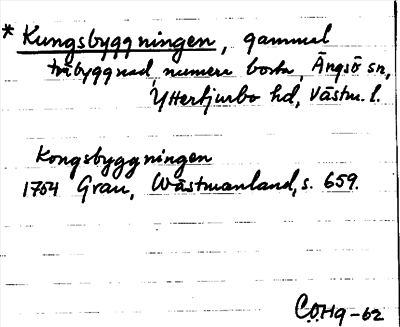 * Kungsbyggningen, gammal
träbyggnad, numera borta, Ängsö sn,
Ytterbjurbo hd, Västm. l.
Kongsbyggningen
1754 Grau, Wästmanland, s. 659.
C.O.Hg-62